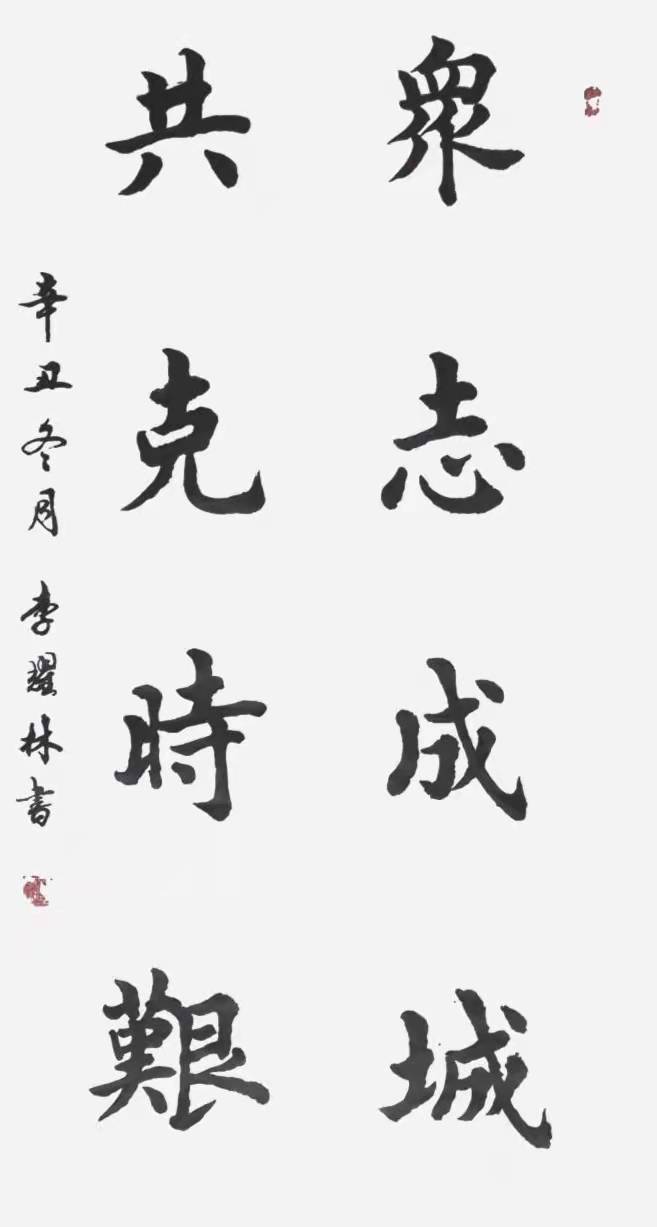 眾志成城
共克時艱
辛丑冬月 李耀林書